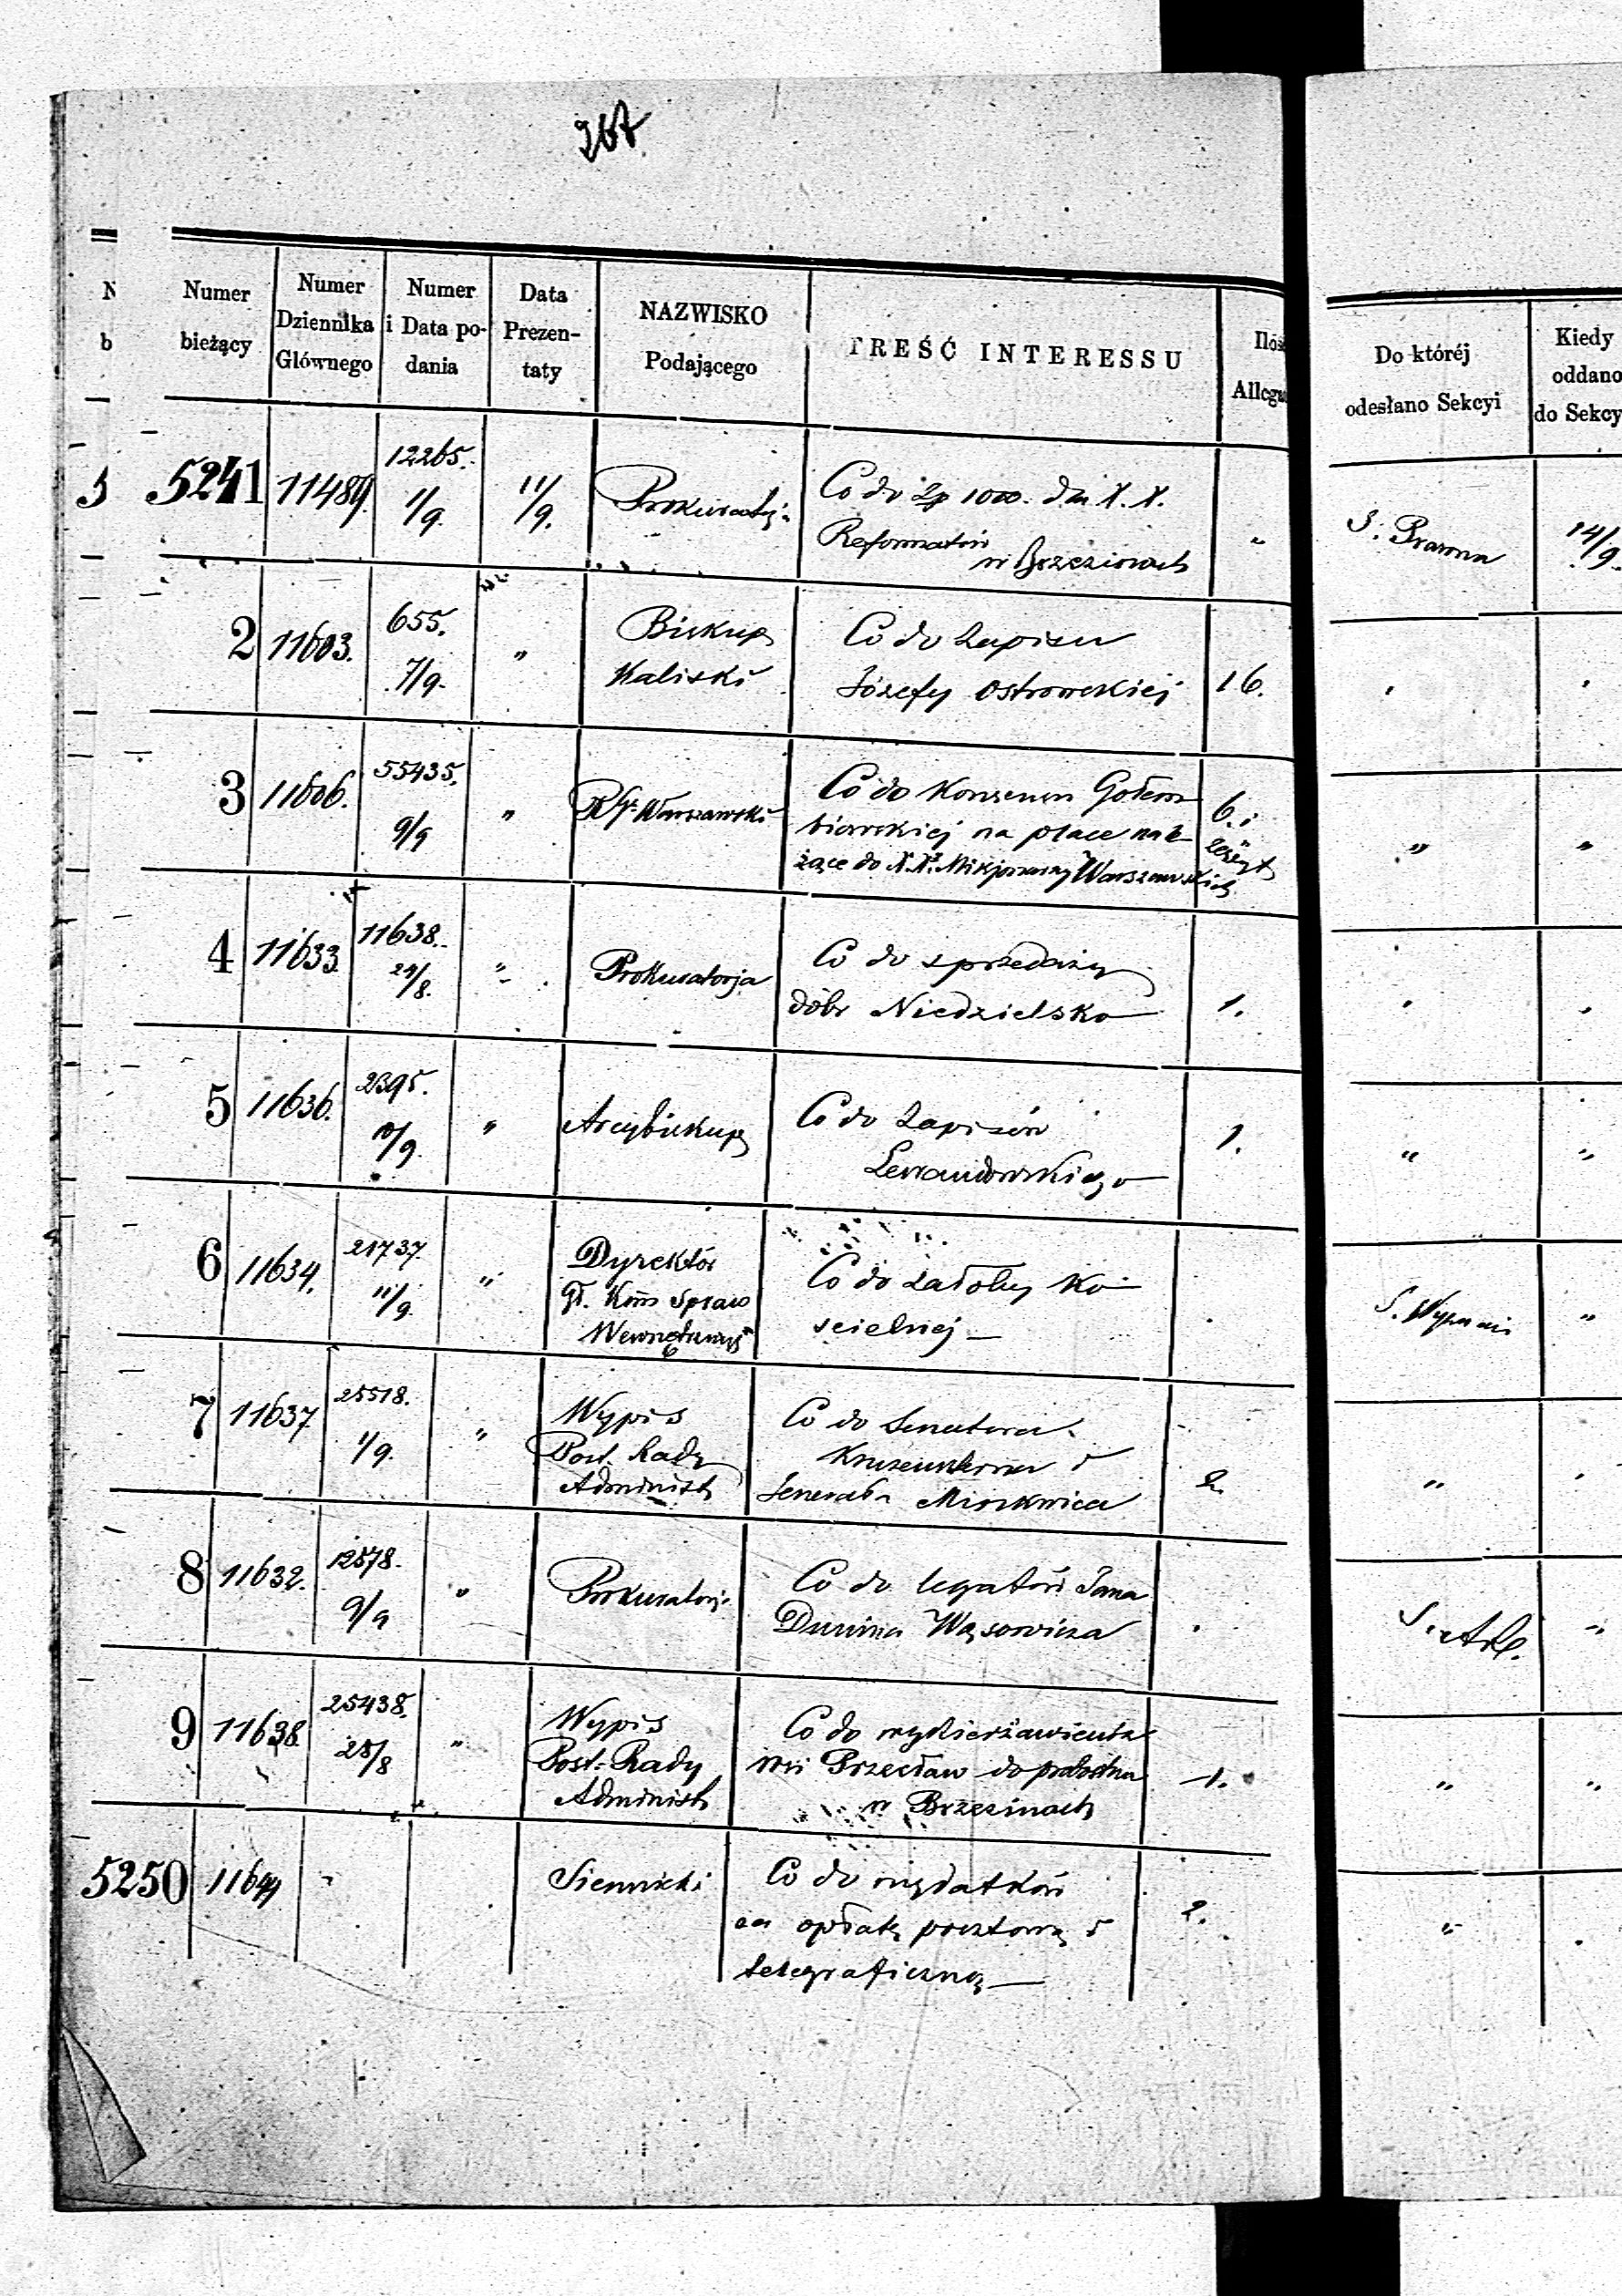 267.
Numer bieżący
Numer Dziennika Głównego
Numer i Data podania
Data Prezentaty
NAZWISKO Podającego
TREŚĆ INTERESSU
Do któréj odesłano Sekcyi
Kiedy oddano
5241 11489. 12265. 1/9. 11/9. Prokuratorja Co do Zp 1000. dla X. X.
Reformatów
w Brzezinach „ S. Prawna 14/9.
2 11603. 655. 7/9. „ Biskup
Kaliski
Co do Zapisu
Józefy Ostrowskiej 16.
3 11606. 55435. 9/9 „ R. G. Warszawski
Co do Konsensu Gołem
biowskiej na place nale
żące do X.X. Misjonarzy Warszawskich
6. i
zeszyt „ „
4 11633 11638. 24/8. „ Prokuratorja
Co do sprzedaży
dóbr Niedzielsko 1.
5 11636. 2395. 10/9. „ Arcybiskup
Co do Zapisów
Lewandowskiego 1. „ „
6 11634. 21737. 11/9. „ Dyrektór
Gł. Kom Spraw
Wewnętrznych
Co do żałoby Ko
ścielnej — S. Wyznań „
7 11637 25518. 1/9. „ Wypis
Post. Rady
Administ
Co do Senatora
Kruzensterna i
Generała Minkwica 2. „
8 11632. 12578. 9/9 „ Prokuratorja
Co do legatów Jana
Dunina Wąsowicza „
9 11638. 25438. 28/8 „ Wypis
Post. Rady
Administ
Co do wydzierżawienia
wsi Przecław do probostwa
w Brzezinach 1. „ „
5250 11644 Siennicki
Co do wydatków
na opłatę pocztową i
telegraficzną — 2. „